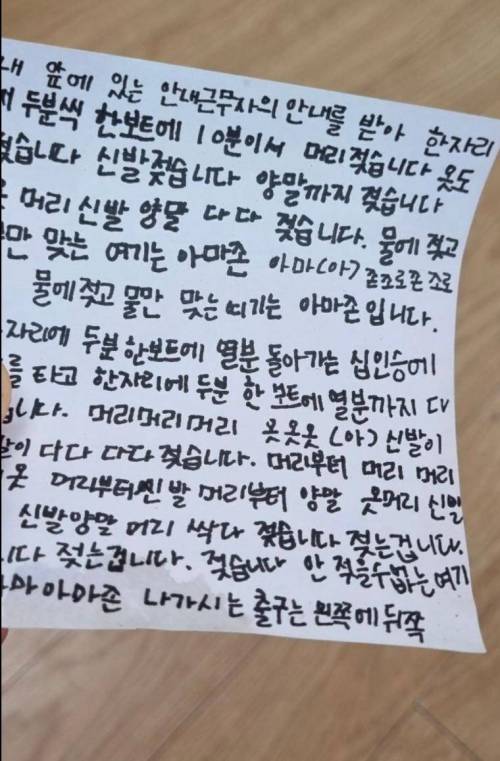 내 앞에 있는 안내근무자의 안내를 받아 한자리
두분씩 한보트에 10분이서 머리젖습니다 옷도
젖습니다 신발젖습니다 양말까지 젖습니다
머리신발 양말 다다 젖습니다. 물에 젖고
물만 맞는 여기는 아마존 아마(아) 존조로존조로
물에젖고 물만 맞는 띠기는 아마존입니다.
자리에 두분한보트에 열분 돌아가는 십인승에
를 타고 한자리에두분 한 보트에 열분까지 다
니다. 머리머리머리 옷옷옷 (아) 신발이
이 다다 다다 젖습니다. 머리부터 머리 머리
옷 머리부터신발 머리부터 양말 옷머리 신발
신발양말 머리 싹다 젖습니다 젖는겁니다.
니다 젖는겁니다. 젖습니다 안 젖을수없는여기
마아마존 나가시는 출구는 왼쪽에 뒤쪽